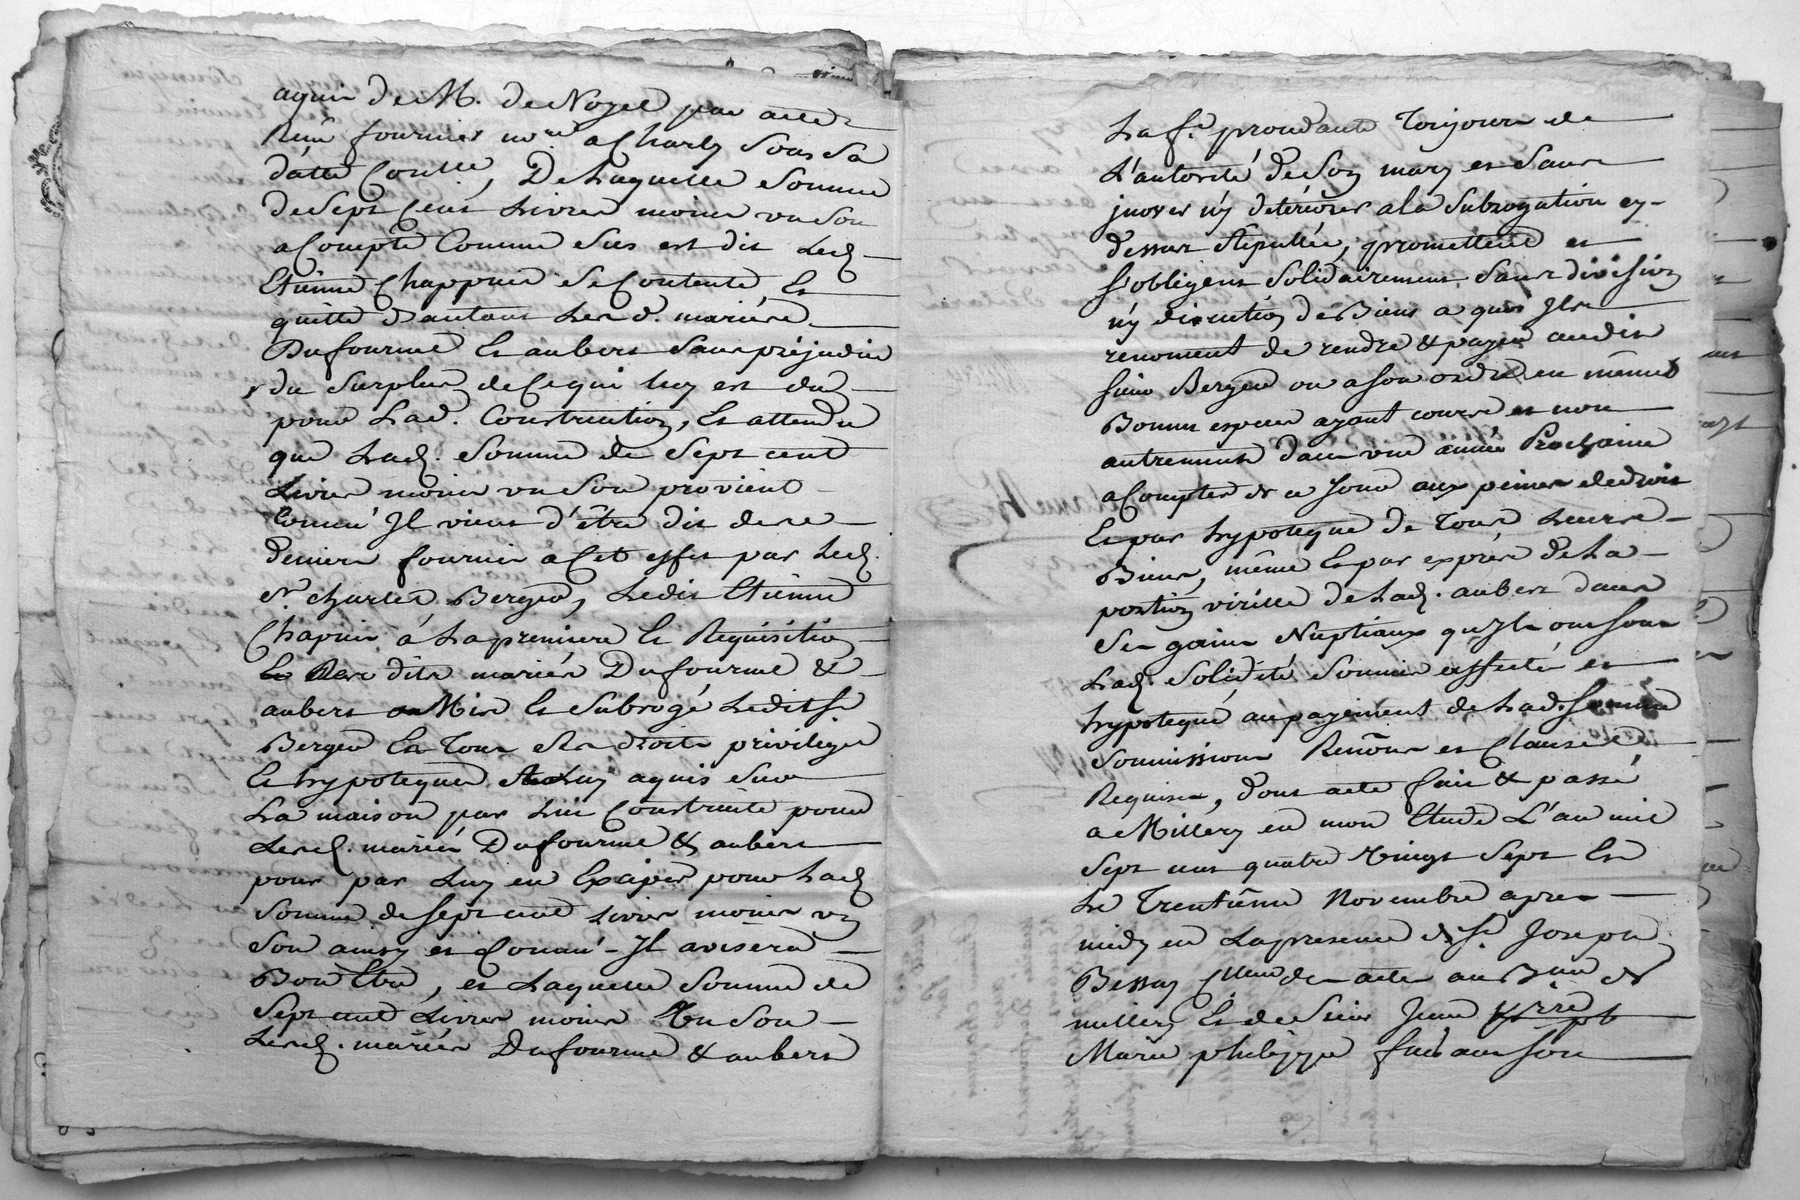 aquis de M. de Nozel par acte
Reçu fournier nre. a Charly Sous Sa
datte Contté, De Laquelle Somme
de Sept Cent Livres moins un Sou
a Compte Comme Sus est dit Led.
Etienne Chappuis Se Contente Et
quitte d'autant Les d. mariés
Dufourme Et aubert Sans préjudice
du Surplus de Ce qui luy est dû
pour Lad. Construction, Et attendu
que Lad. Somme de Sept cent
Livres moins un Sou provient
Comme Il vient d'être dit des
deniers fournis a Cet effet par Led.
Sr. Charles Berger, Ledit Etienne
Chapuis à La premiere Et Requisition
Des dits mariés Dufourme &
aubert a Mis Et Subrogé Ledit Sr.
Berger En Tous Ses droits privileges
Et hypoteques a Luy aquis Sur
La maison par Lui Construite pour
Lesd. mariés Dufourme & aubert
pour par Luy en Exciper pour Lad.
Somme de Sept cent Livres moins un
Sou ainsy et Comme Il avisera
Bon Etre, et Laquelle Somme de
Sept cent Livres moins Un Sou
Lesd. mariés Dufourme & aubert
La fe. procedante Toujours de
L'autorité de Son mary et Sans
jnover n'y deteriorer a la Subrogation cy-
dessus Stipullée, promettent et
s'obligent Solidairement Sans division
n'y discution de Biens a quoi Ils
renoncent de rendre & payer audit
sieur Berger ou a Son ordre en mêmes
Bonnes especes ayant cours et non
autrement dans une année Prochaine
a Compter de ce Jour aux peines de droit
Et par hypoteque de Tous Leurs
Biens, même Et par exprés de La
portion virille de Lad. aubert dans
Ses gains Nuptiaux qu'Ils ont Sous
Lad. Solidité Soumis affecté et
hypotequé au payement de Lad. Somme
Soumissions Renôn. et Clauses
Requises, dont acte fait & passé
a Millery en mon Etude L'an mil
Sept cent quatre Vingt Sept Et
Le Trentiême Novembre apres
midy en La presence de Sr. Joseph
Bessay Clleur. des actes au Beau de
millery Et de Sieur Jean
Marie philippe